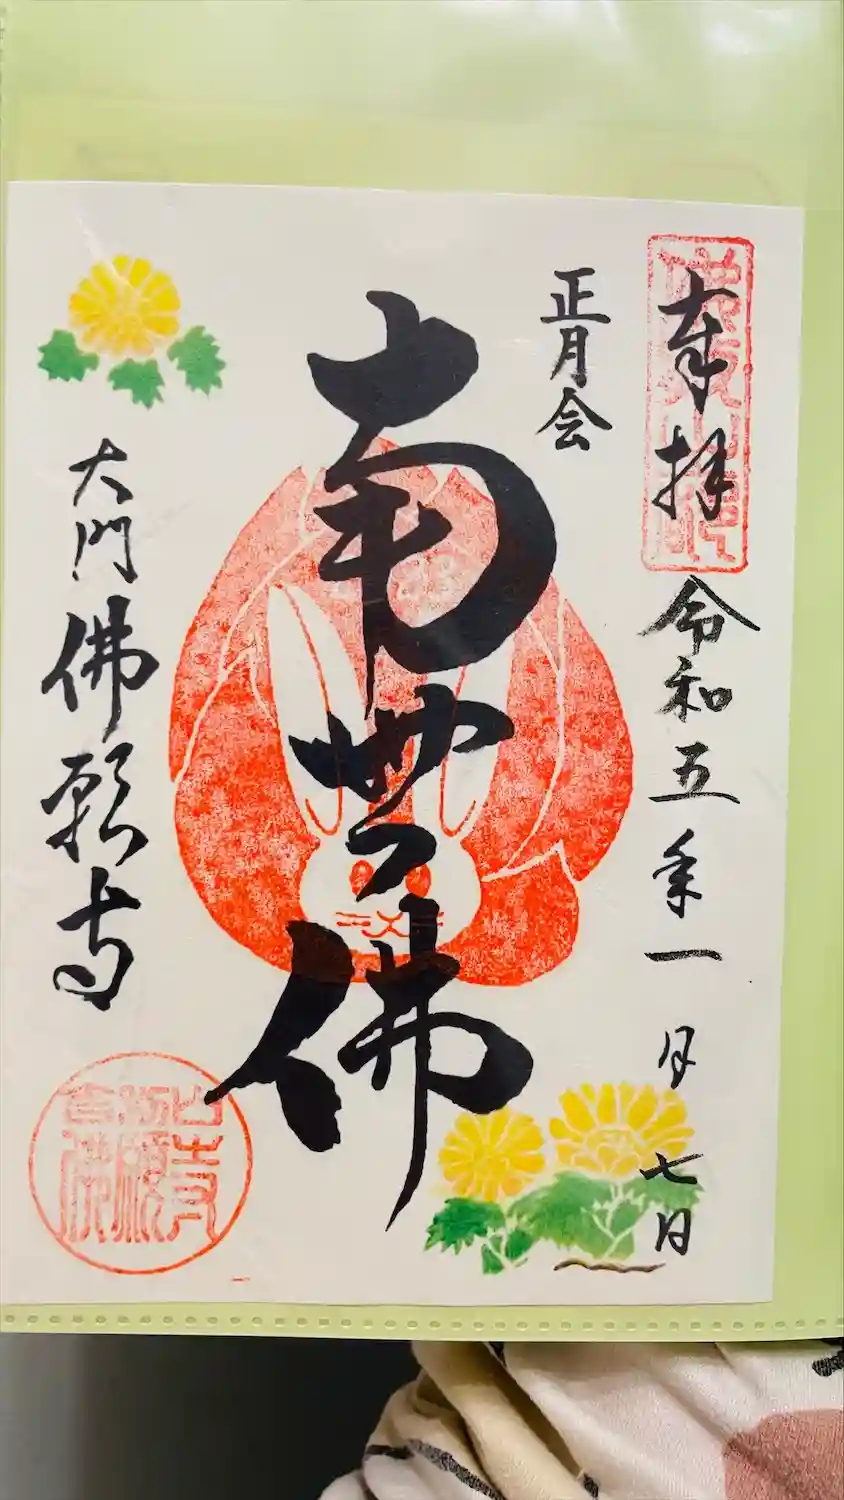 奉拝
令和五年一月七日
正月会
南無佛
大門
佛願寺